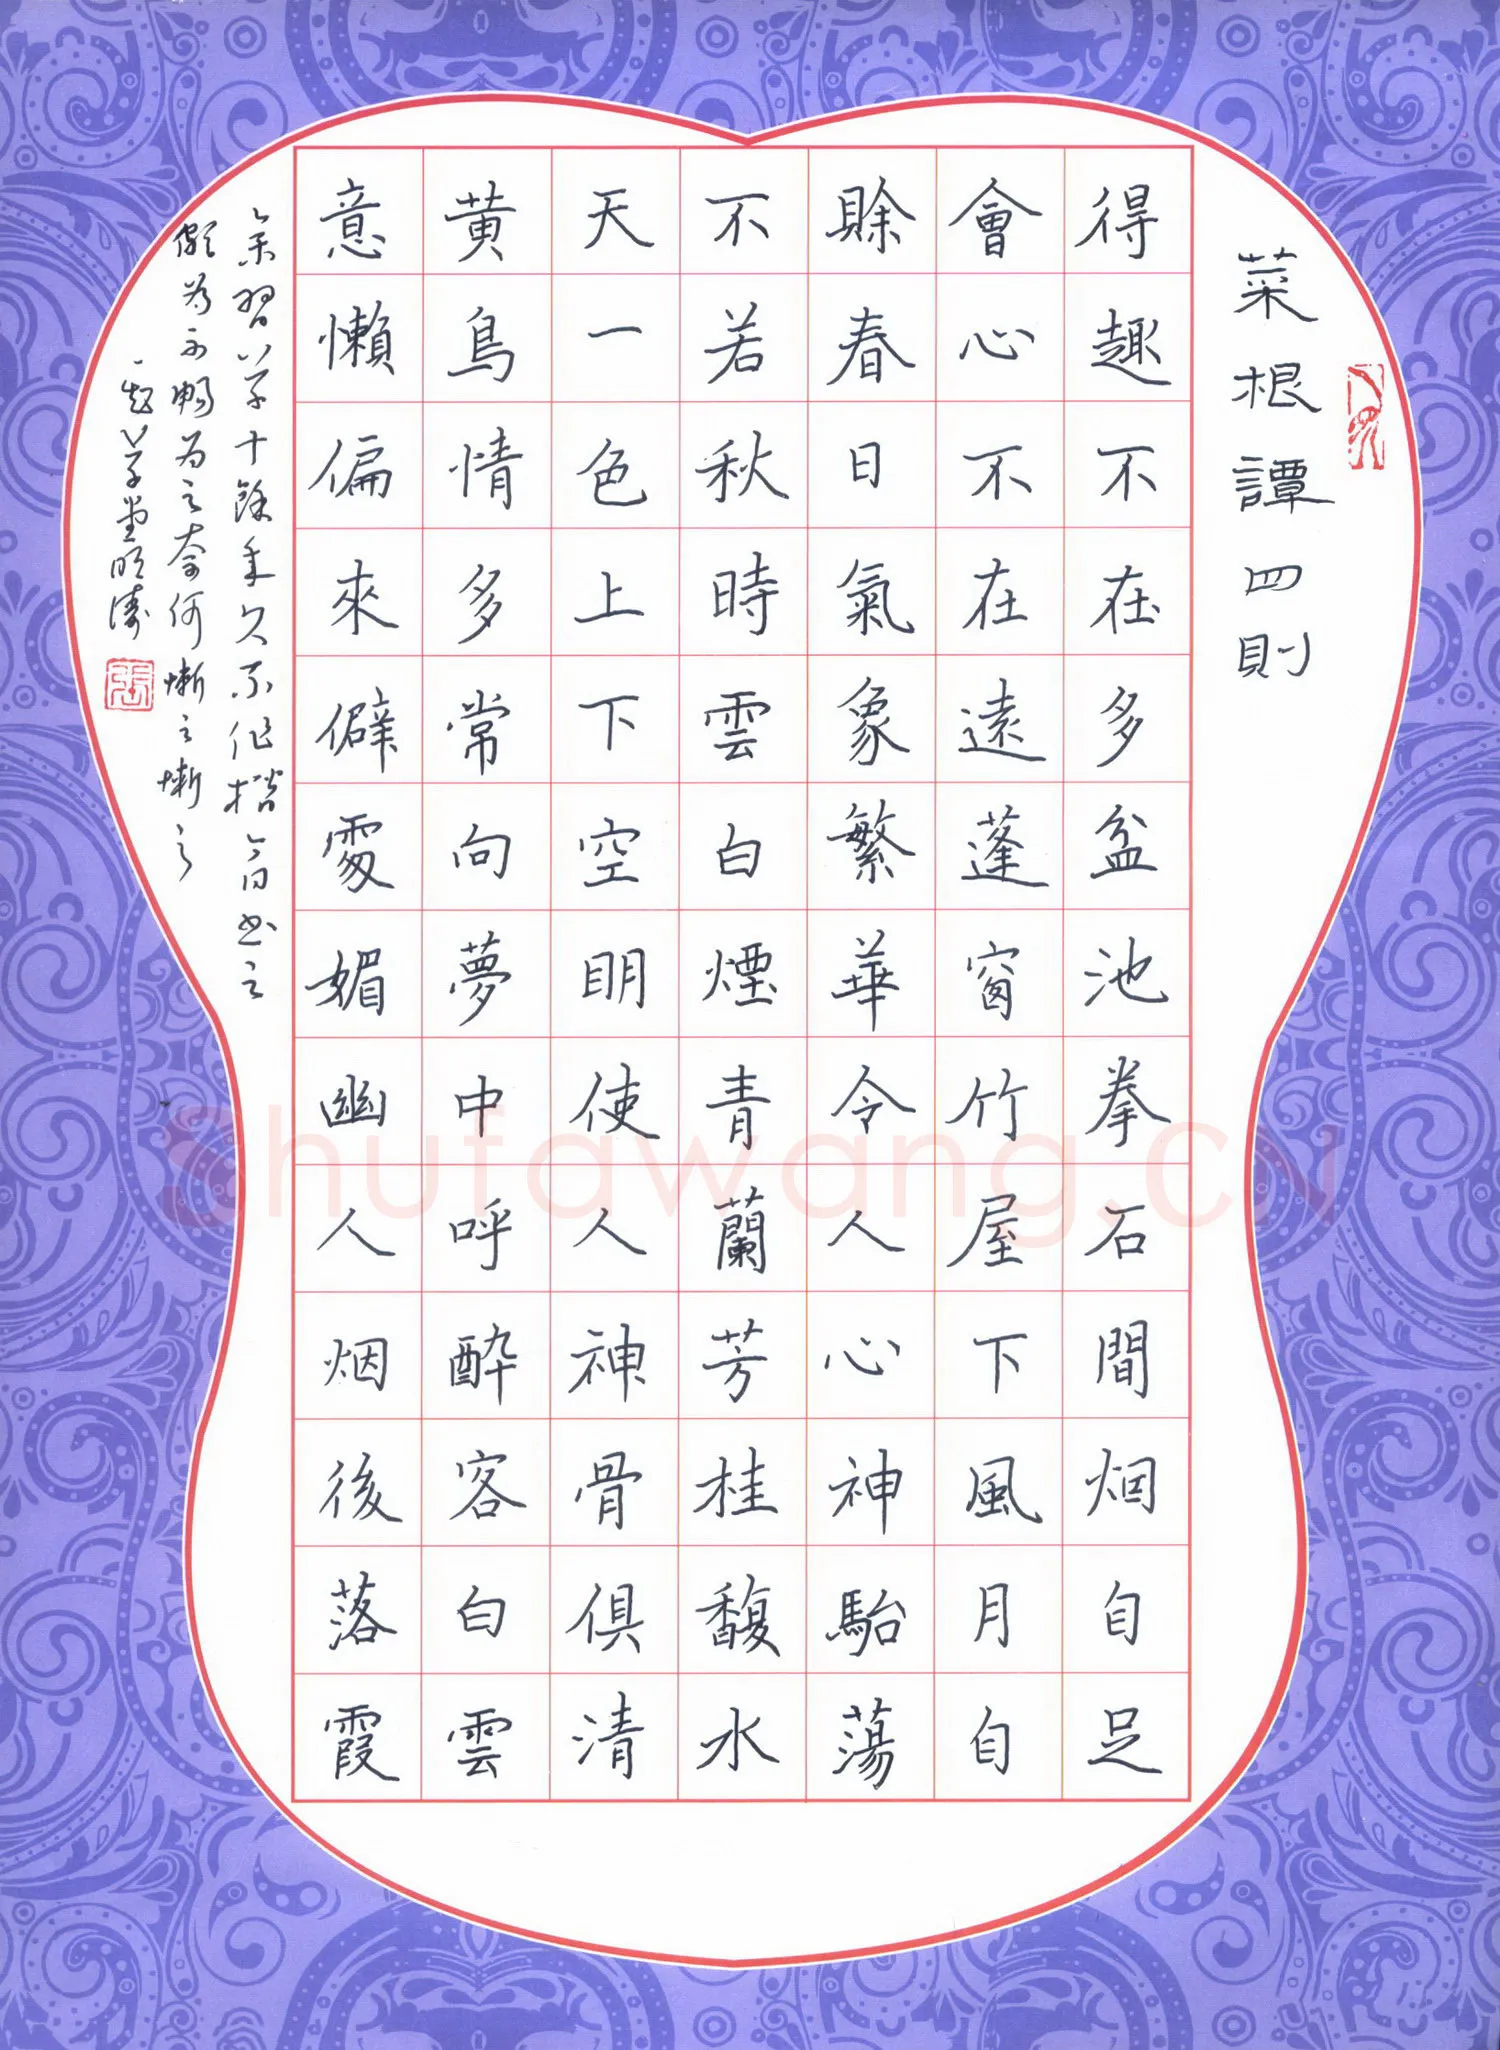 菜根譚四則
得趣不在多盆池拳石間烟自足
會心不在遠蓬窗竹屋下風月自
賖春日氣象繁華令人心神駘蕩
不若秋時雲白煙青蘭芳桂馥水
天一色上下空明使人神骨俱清
黄鳥情多常向夢中呼醉客白雲
意懶偏來僻處媚幽人烟後落霞
余習草十餘年久不作楷今日書之
頗為不暢為之奈何慚之慚之
草堂明濤
張
Shufawang.CN